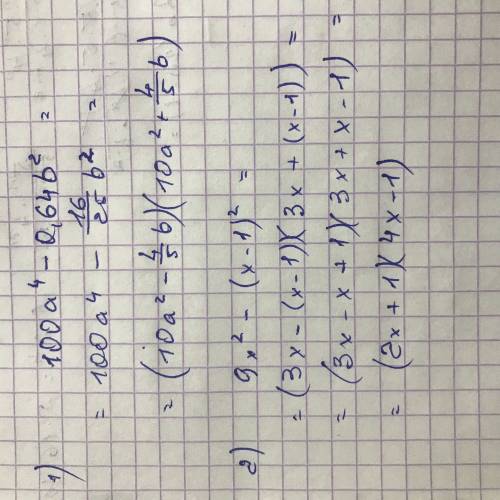 1) 100a⁴ - 0,64b² =
= 100a⁴ - 16/25 b² =
= (10a² - 4/5 b)(10a² + 4/5 b)
2) 9x² - (x-1)² =
= (3x - (x-1))(3x + (x-1)) =
= (3x - x + 1)(3x + x - 1) =
= (2x + 1)(4x - 1)